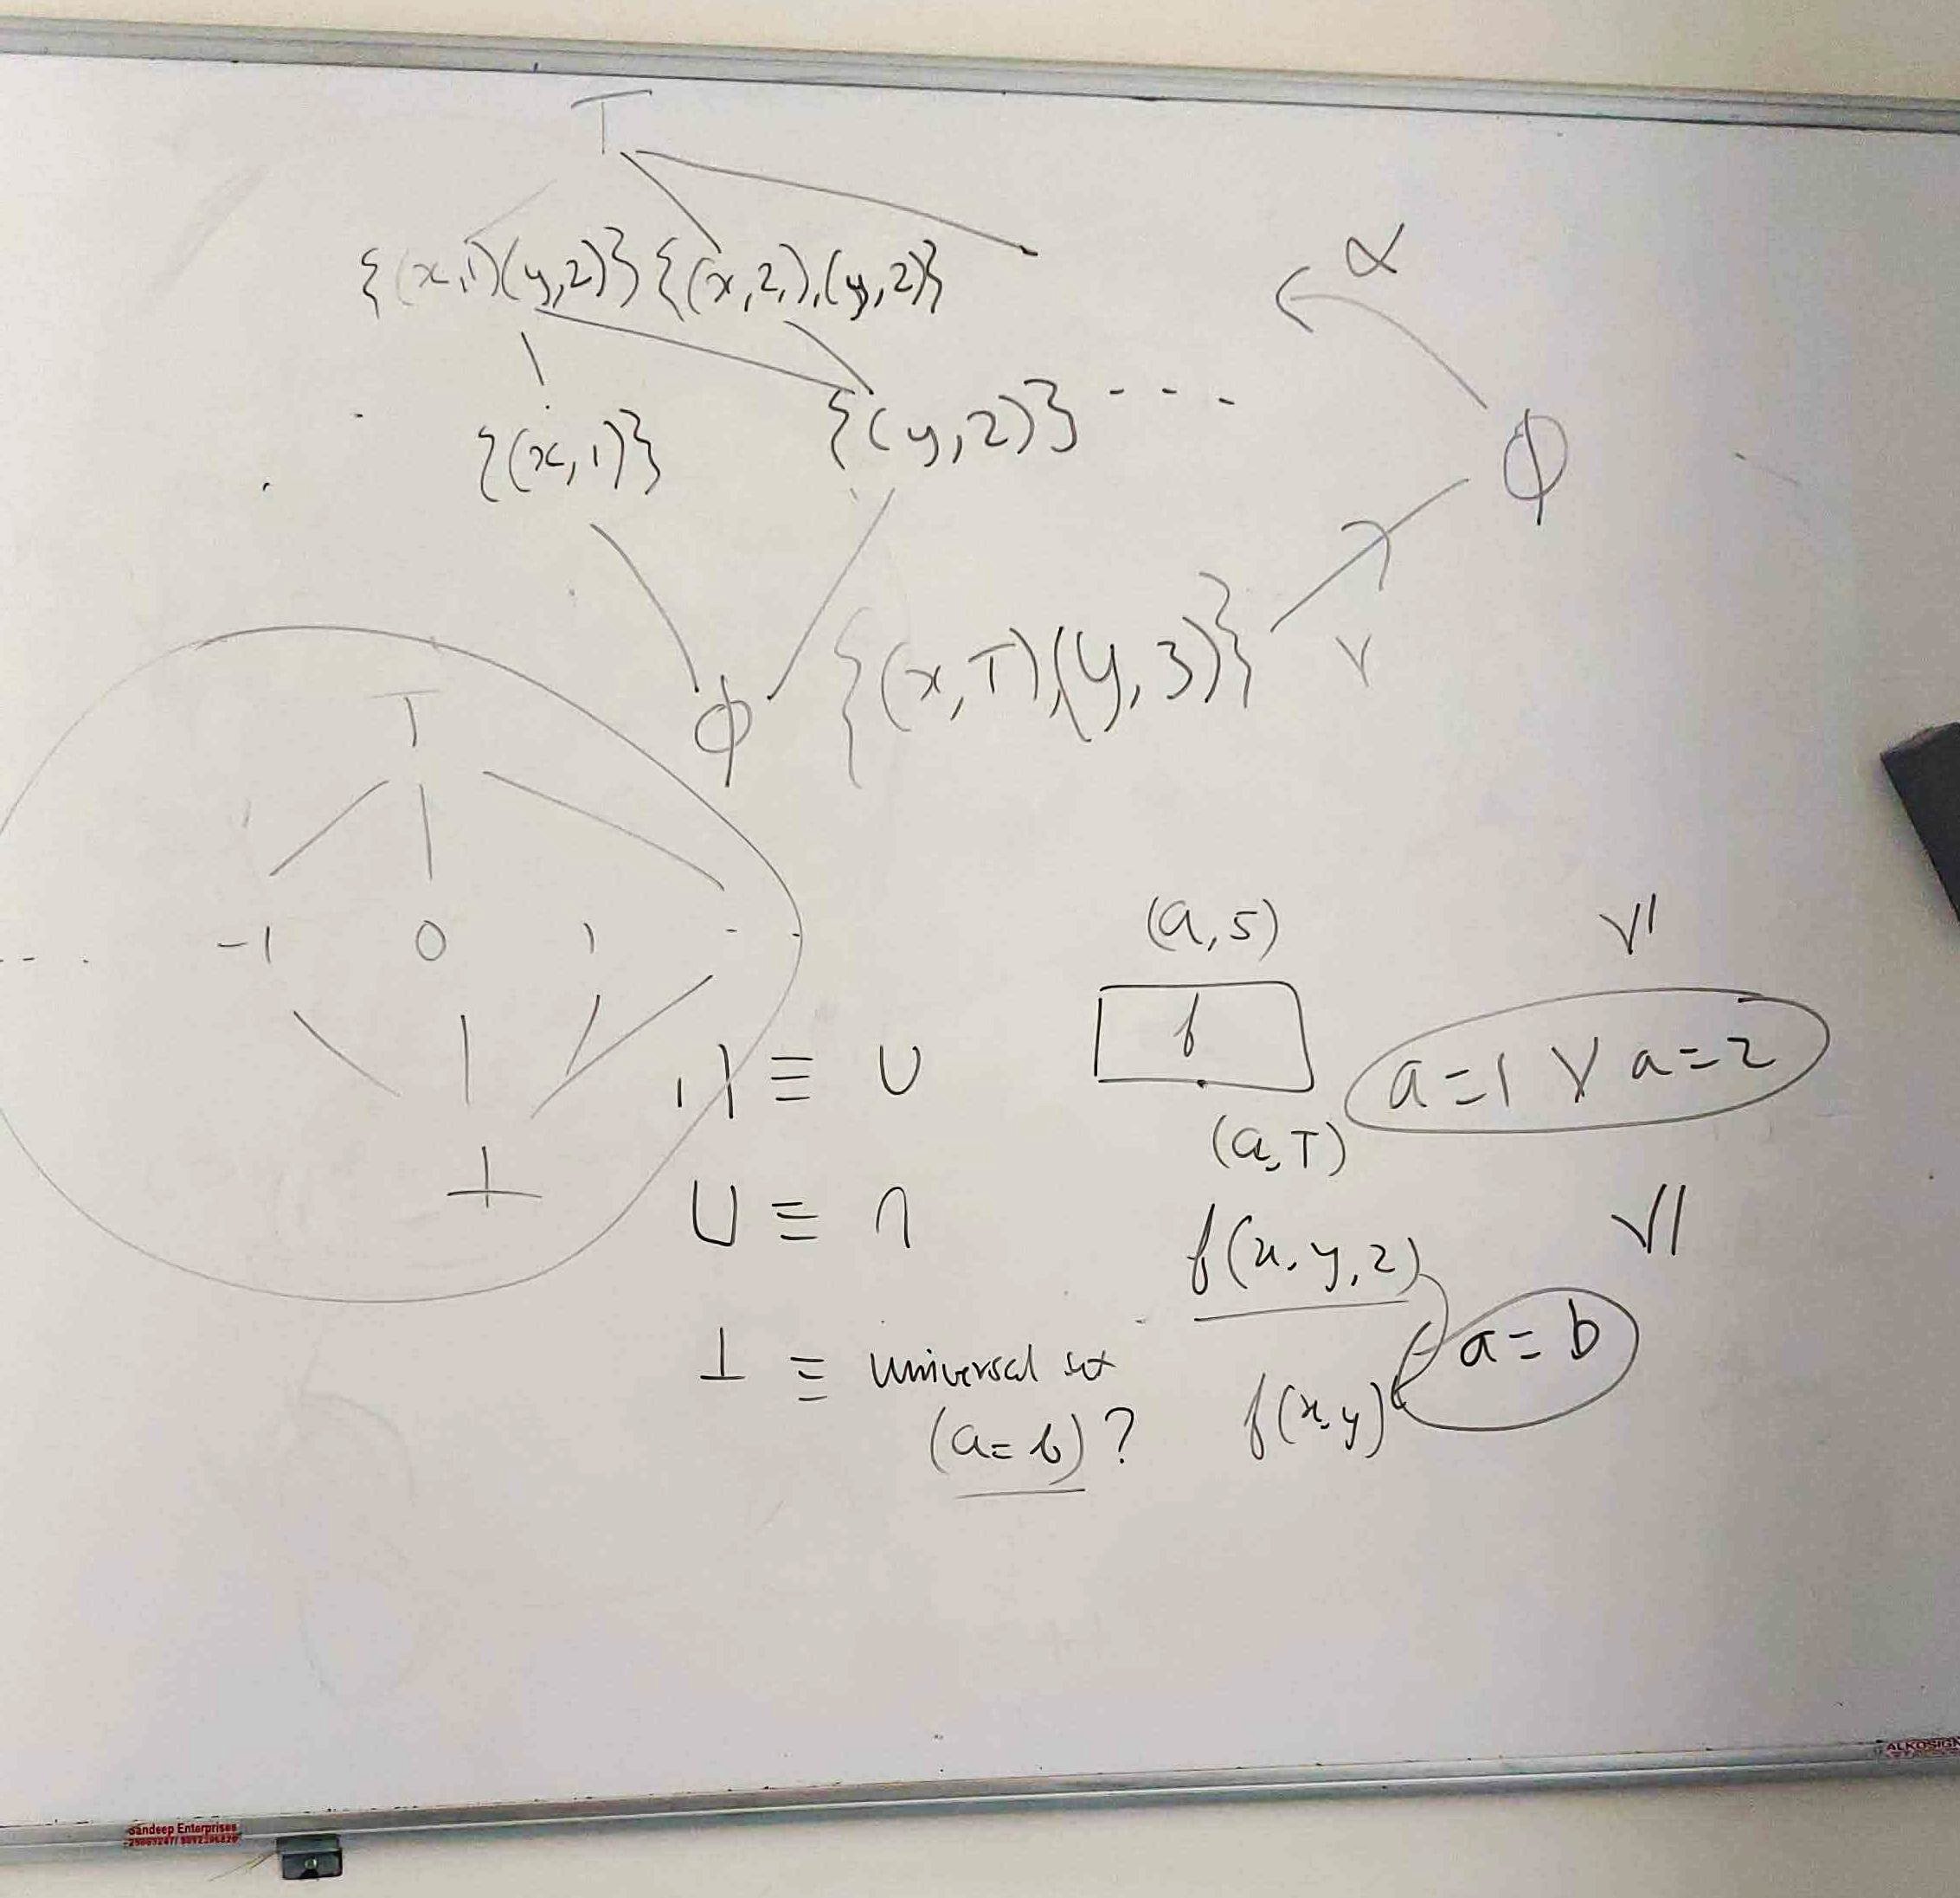 ⊤
{(x,1)(y,2)} {(x,2,),(y,2)}
α
{(x,1)} {(y,2)} - - - -
ϕ
{(x,⊤),(y,3)}
γ
⊤
ϕ
- - . -1 0 1 - -
⊥
≡ ∪
⊔ ≡ ∩
⊥ ≡ universal set
(a=b)?
(a,5)
f
(a,⊤)
f(x,y,z)
f(x,y)
√I
a=1 ∨ a=2
√I
a=b
Sandeep Enterprises
ALKOSIGN